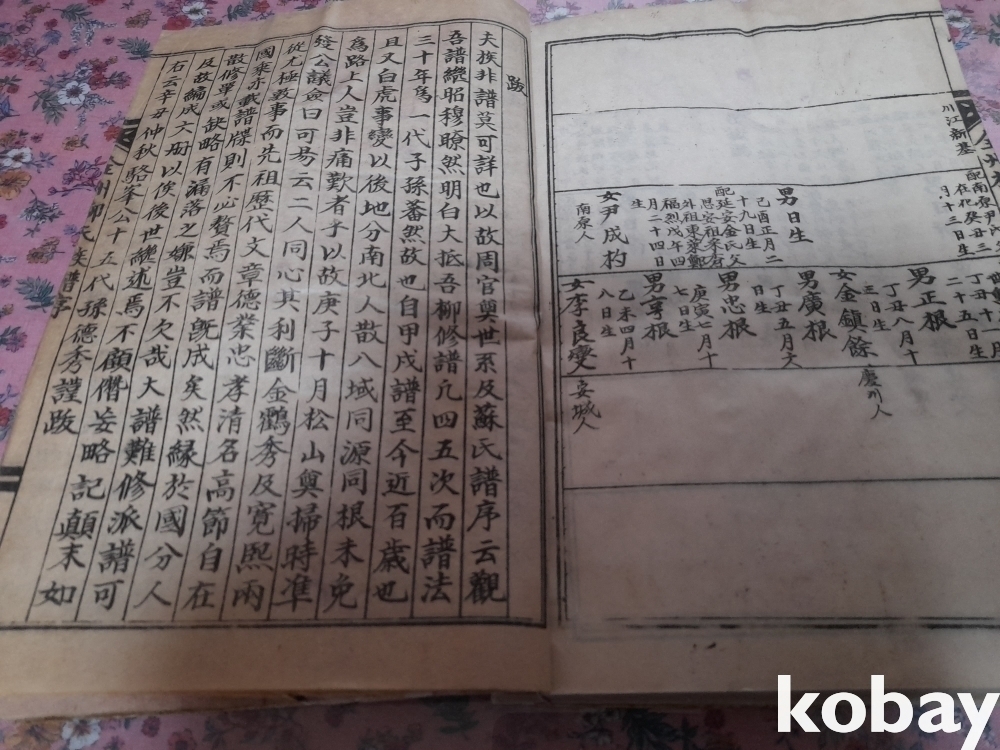 川江新基
配南原尹氏
在化癸丑三
月十三日生
男日生
己酉正月二
十九日生
配延安金氏父
思安祖來有
外祖東萊鄭
福烈戊年四
月二十四日
生
女尹成杓
南原人
丁丑十一月
二十五日生
男正根
丁丑八月十
三日生
女金鎮餘
慶州人
男廣根
丁丑五月六
日生
男忠根
庚寅七月十
七日生
男亨根
乙未四月十
八日生
女李良燮
安城人
跋
夫族非譜莫可詳也以故周官奠世系及蘇氏譜序云觀
吾譜纔昭穆瞭然明白大抵吾柳修譜凡四五次而譜法
三十年爲一代子孫蕃然故也自甲戌譜至今近百歲也
且又白虎事變以後地分南北人散八域同源同根未免
爲路上人豈非痛歎者乎以故庚子十月松山奠掃時準
發公議僉曰可易云二人同心其利斷金鸖秀及寬熙兩
從尤極致事而先祖歷代文章德業忠孝清名高節自在
國乘亦載譜牒則不必贅焉而譜旣成矣然緣於國分人
散修單或缺略有漏落之嫌豈不欠哉大譜難修派譜可
及故編成六册以俟後世繼述焉不顧僭妄略記顛末如
右云辛丑仲秋駱峯公十五代孫德秀謹跋
全州柳氏族譜序
kobay